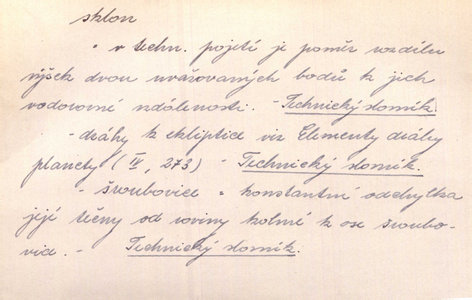 sklon
= v techn. pojetí je poměr rozdílu
výšek dvou uvažovaných bodů k jich
vodorovné vzdálenosti. - Technický slovník.
- dráhy k ekliptice viz Elementy dráhy
planety (IV, 273) - Technický slovník.
- šroubovice = konstantní odchylka
její tečny od roviny kolmé k ose šroubo-
vice. - Technický slovník.